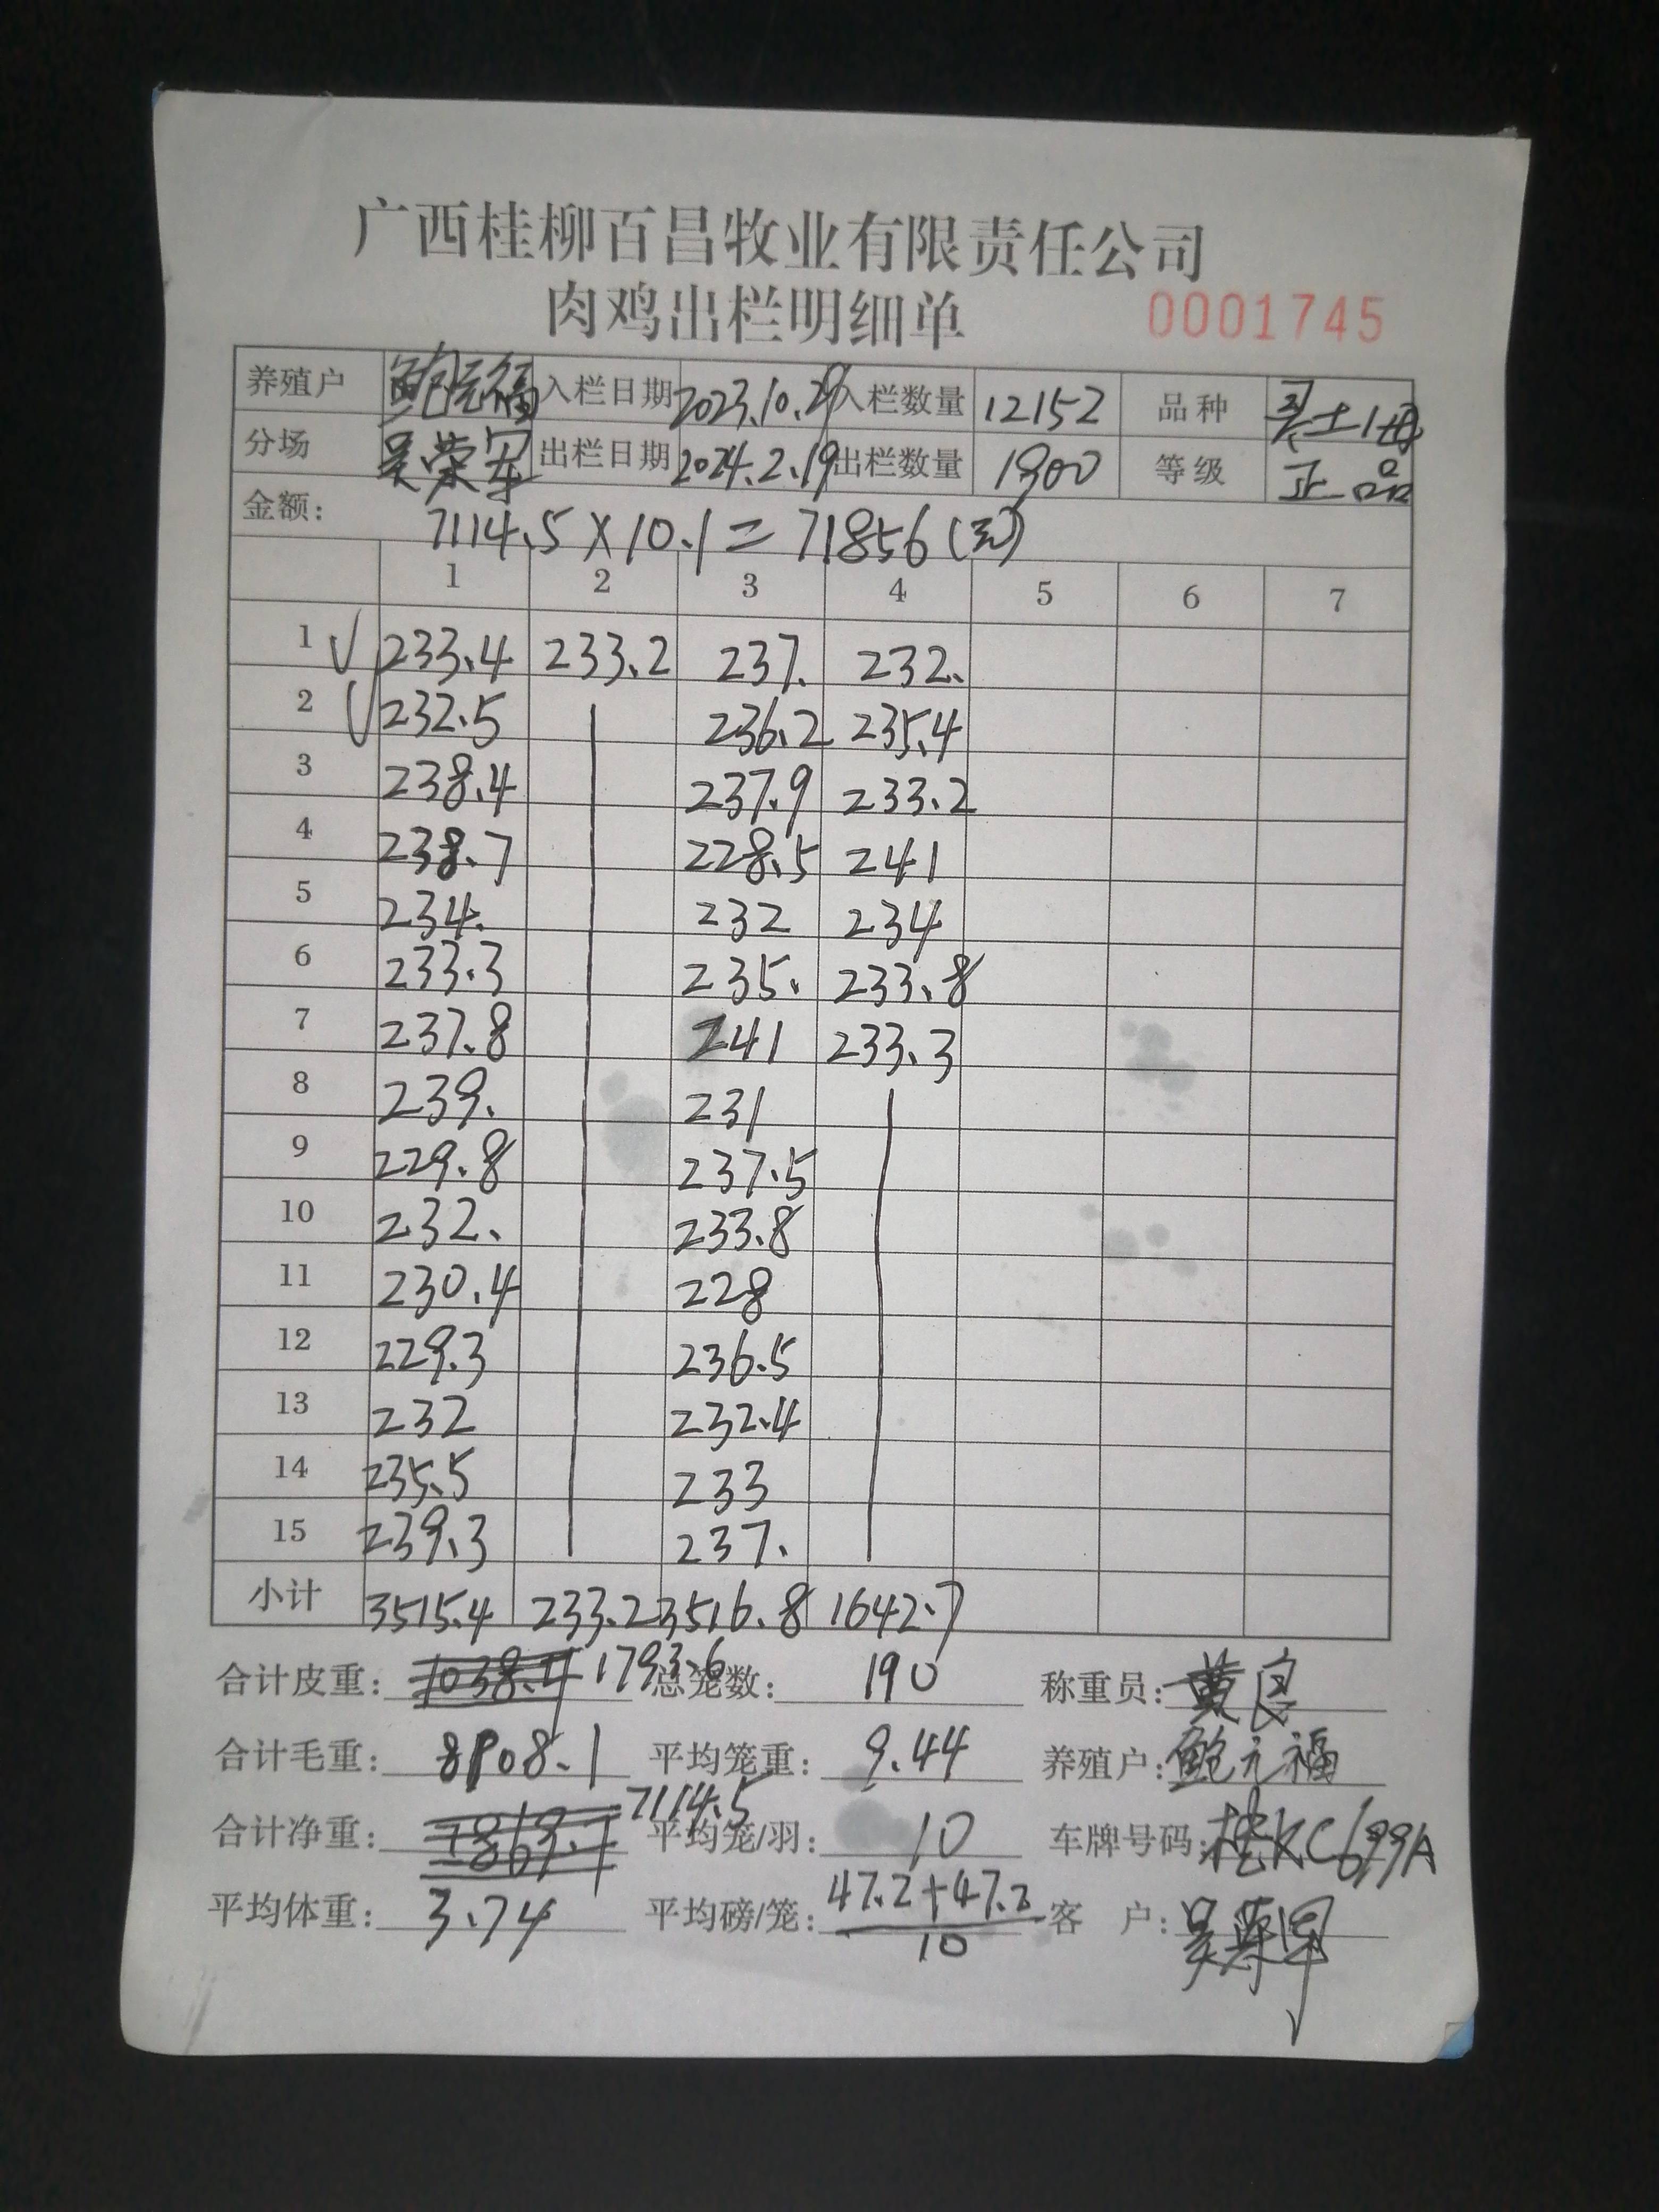 广西桂柳百昌牧业有限责任公司
肉鸡出栏明细单 0001745
养殖户 鲍元福 入栏日期 2023.10.29 入栏数量 12152 品种 土1母
分场 吴荣军 出栏日期 2024.2.19 出栏数量 1900 等级 正品
金额: 7114.5×10.1=71856(元)
1 2 3 4 5 6 7
1 √ 233.4 233.2 237. 232.
2 √ 232.5 236.2 235.4
3 238.4 237.9 233.2
4 238.7 228.5 241
5 234. 232 234
6 233.3 235. 233.8
7 237.8 241 233.3
8 239. 231
9 229.8 237.5
10 232. 233.8
11 230.4 228
12 229.3 236.5
13 232 232.4
14 235.5 233
15 239.3 237.
小计 3515.4 233.2 3516.8 1642.7
合计皮重: 1038.4 1793.6 总笼数: 190 称重员: 黄良
合计毛重: 8908.1 平均笼重: 9.44 养殖户: 鲍元福
合计净重: 7869.7 7114.5 平均笼/羽: 10 车牌号码: 桂KC699A
平均体重: 3.74 平均磅/笼: 47.2+47.2 客 户: 吴荣军
10